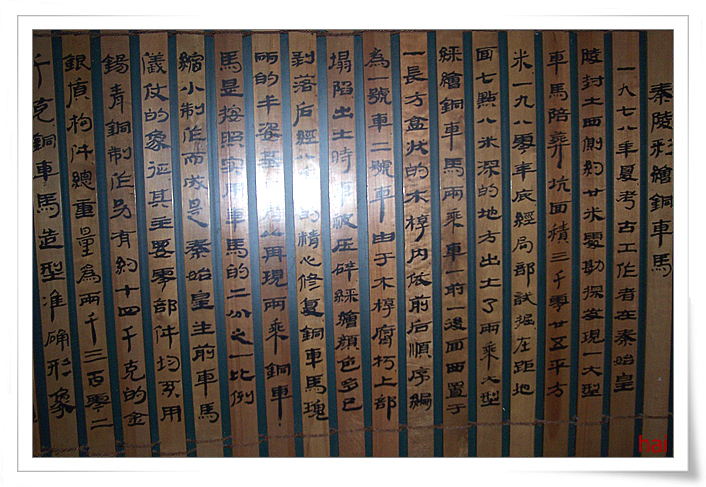 秦陵彩繪銅車馬
一九七八年夏考古工作者在秦始皇
陵封土西側約廿米處勘探發現一大型
車馬陪葬坑面積三千零廿五平方
米一九八零年底經局部試掘在距地
面七點八米深的地方出土了兩乘大型
綵繪銅車馬兩乘車一前後面西置于
一長方盒狀的木椁内依前后順序編
為一號車二號車由于木椁腐朽上部
塌陷出土時被压碎綵繪顏色多已
剥落后經的精心修复銅車馬瑰
丽的丰姿再現兩乘銅車
馬是按照实用車馬的二分之一比例
縮小制作而成是秦始皇生前車馬
儀仗的象征其主要零部件均系用
錫青銅制作另有約十四千克的金
銀質构件總重量為兩千三百零二
千克銅車馬造型准确形象
hal